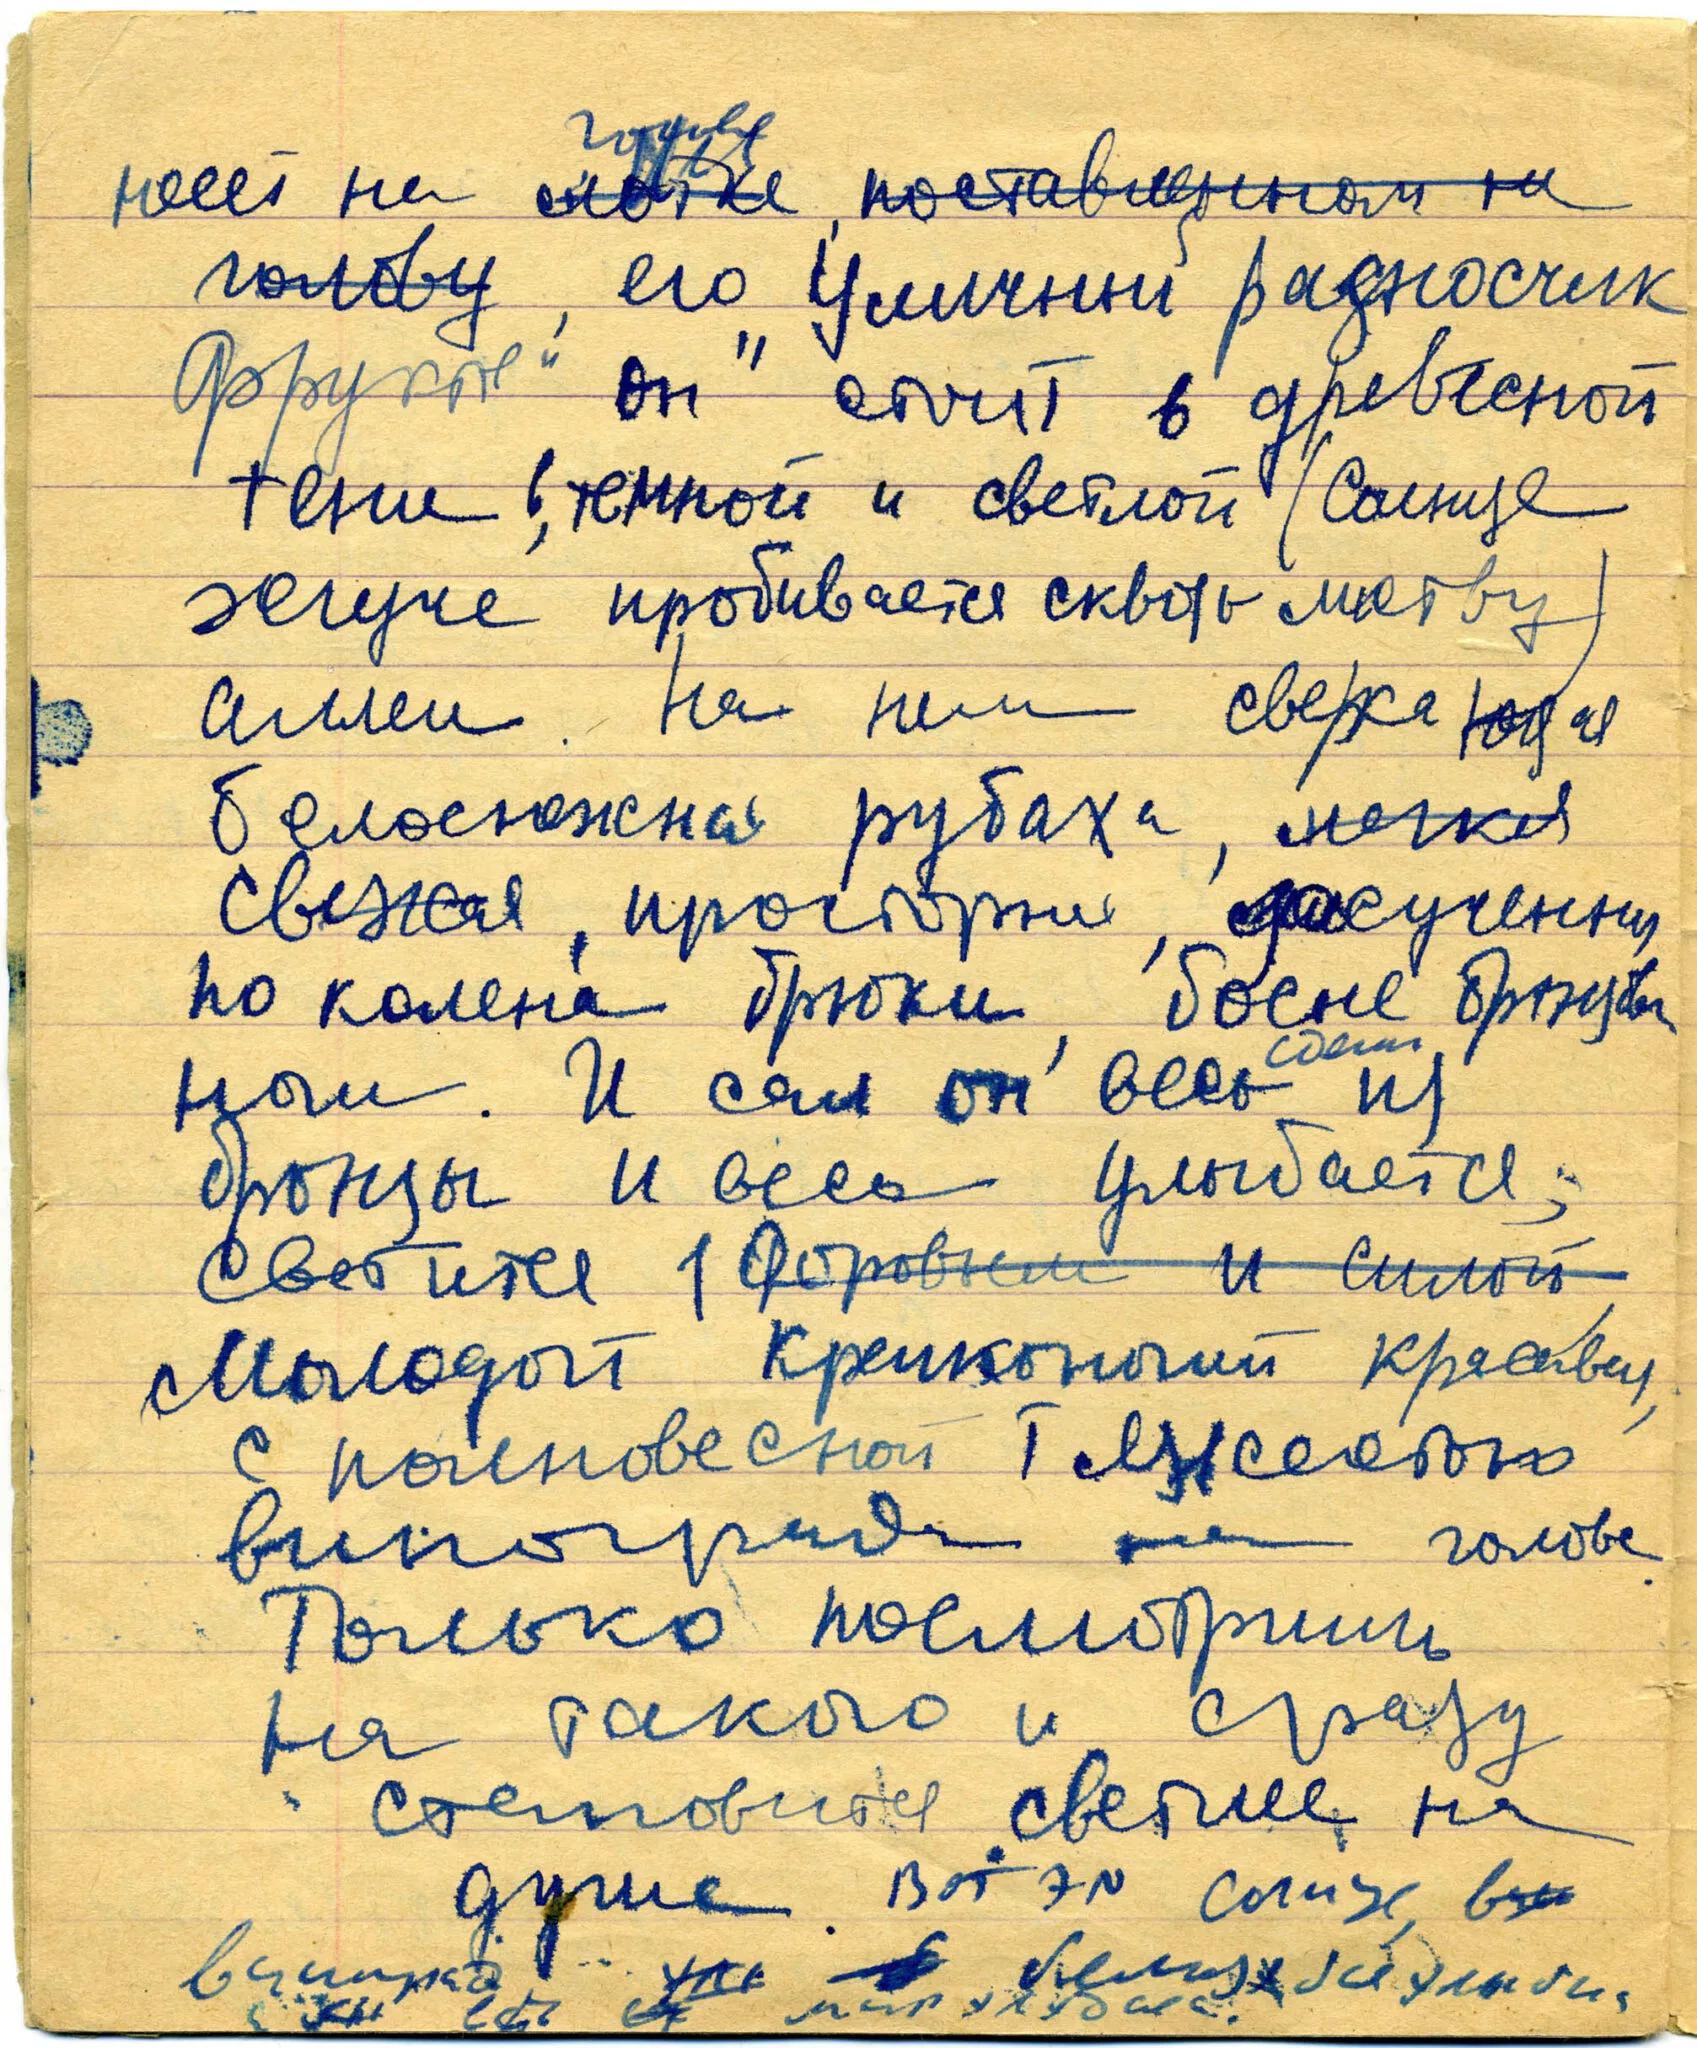 голове
несет на лотке, поставленном на
голову, его "Уличный разносчик
фруктов" Он стоит в древесной
тени, темной и светлой (Солнце
жгуче пробивается сквозь листву)
аллеи. На нем сверкающая
белоснежная рубаха, мягкая
свежая, просторная, засученные
по колена брюки, босые бронзовые
ноги. И сам он весь из
бронзы и весь улыбается,
светится здоровьем и силой,
Молодой крепконогий красавец,
с полновесной тяжестью
винограда на голове.
Только посмотришь
на такого и сразу
становится светлее на
душе. Вот это солнце,